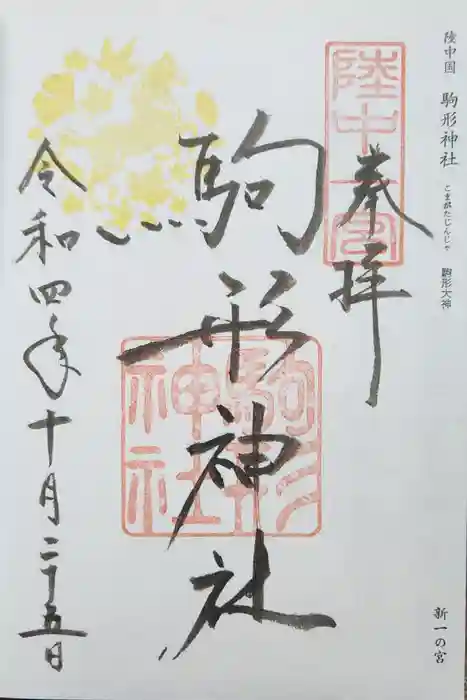 陸中国 駒形神社 こまがたじんじゃ 駒形大神
新一の宮
陸中一宮
奉拝
駒形神社
駒形神社
令和四年十月二十五日